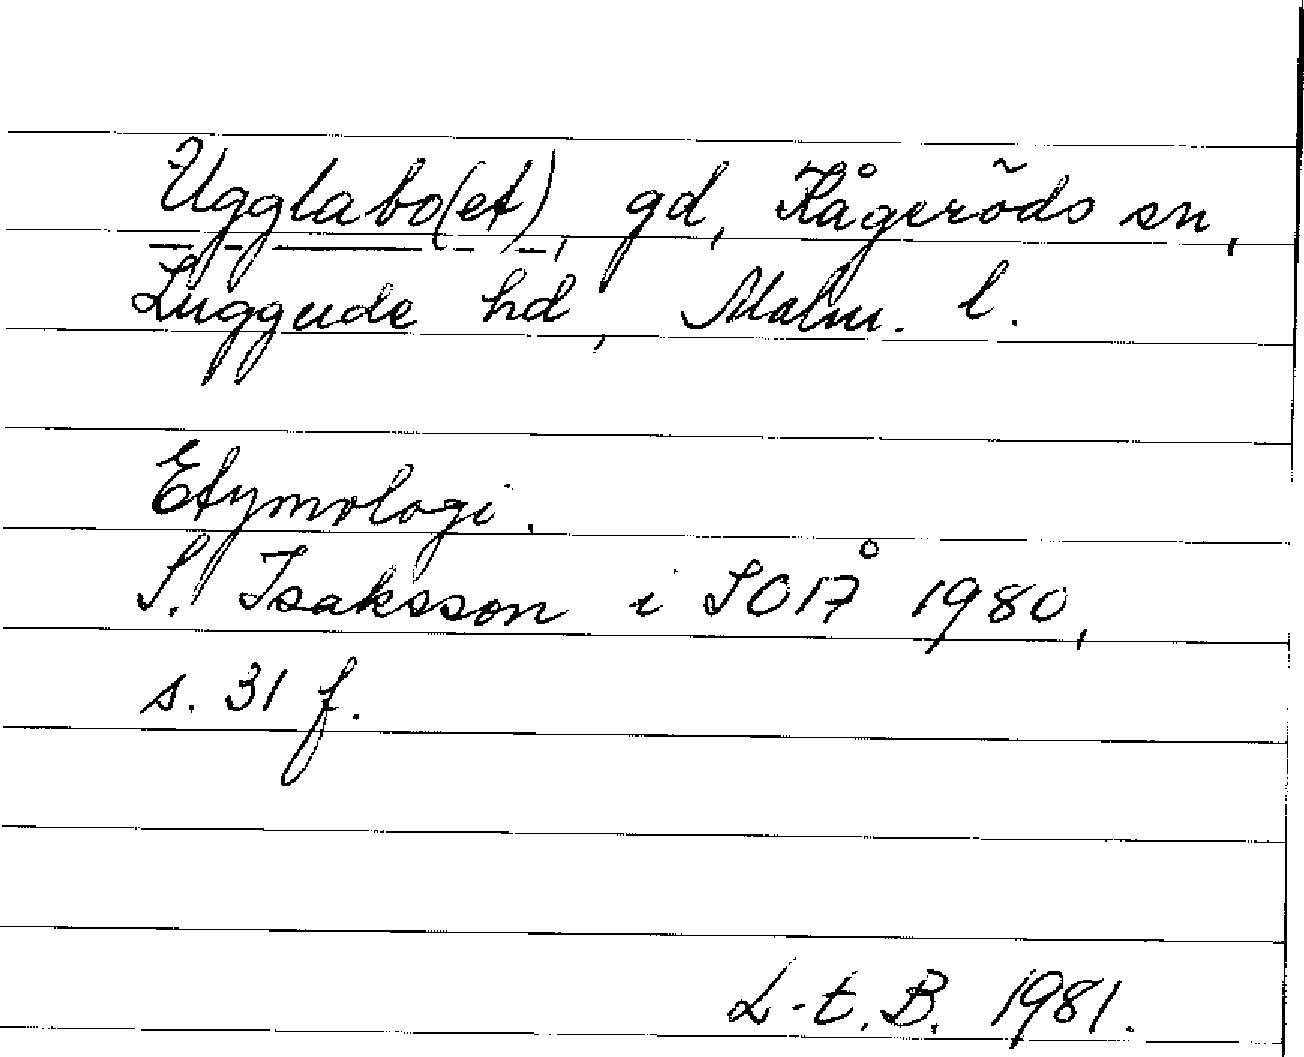 Ugglabo(et), gd, Kågeröds sn,
Luggude hd, Malm. l.
Etymologi.
S. Isaksson i SOFÅ 1980,
s. 31 f.
L-t. B. 1981.